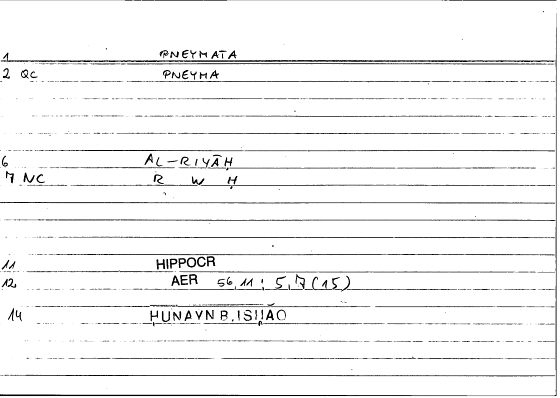 1 PNEYMATA
2 QC PNEYMA
6 AL-RIYĀḤ
7 NC R W Ḥ
11 HIPPOCR
12 AER 56,11 ; 5,7 (15)
14 ḤUNAYN B. ISḤĀQ